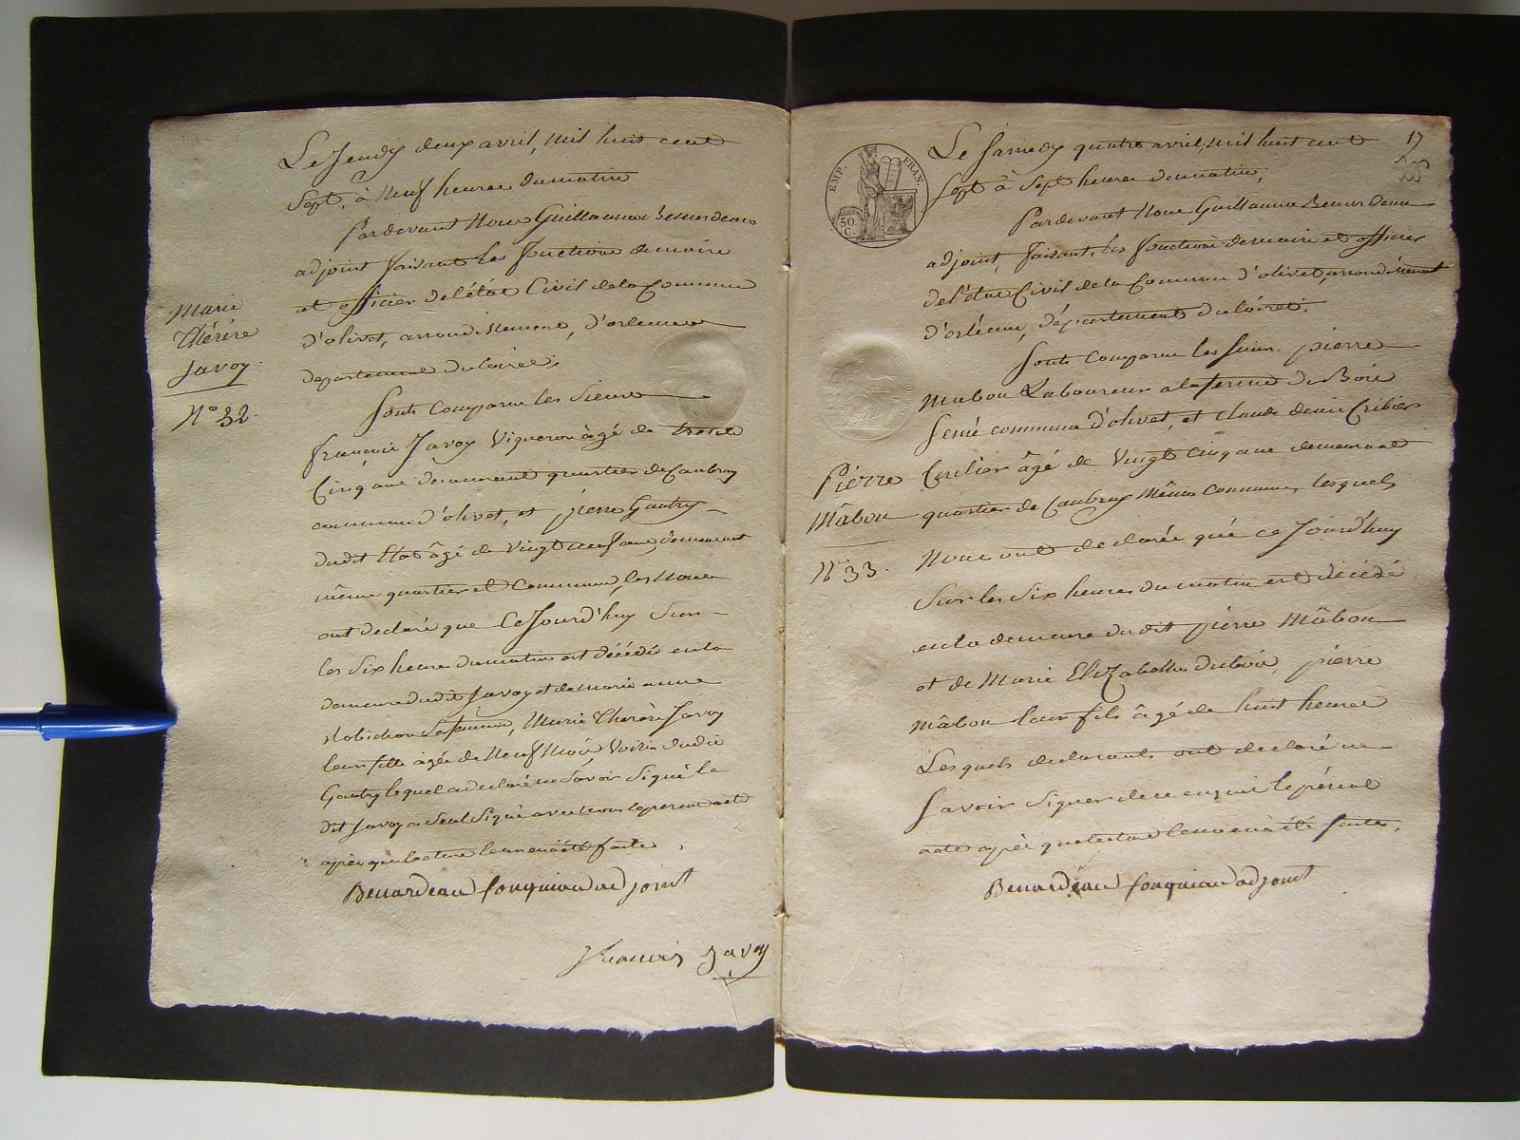 Le Jeudy deux avril, mil huit cent
Sept, à Neuf heures dumatin
Pardevant Nous Guillaume Benardeau
adjoint faisant les fonctions demaire
et officier del'état Civil dela Commune
d'olivet, arrondissement, d'orleans
departement duloiret;
Marie
Thérèse
Javoy.
N° 32.
Sont comparu les Sieurs
françois Javoy Vigneron âgé de trente
Cinq ans demeurant quartier de Caubray
commune d'olivet, et pierre Gautry
dudit Etat âgé de vingt neuf ans, demeurant
même quartier et Commune, les Nous
ont declaré que CeJourd'huy Sur
les Six heures dumatin est décédé enla
demeure dudit Javoy et de marie anne
Robichon Safemme, Marie Therèse Javoy
leur fille âgée de Neuf Mois, Voisin dudit
Gautry lequel a declaré ne Savoir Signé le
dit Javoy a Seul Signé avec nous leprésent acte
après que lecture leur en a été faite.
Benardeau fouquiau adjoint
francois Javoy
17
EMP. FRAN.
50.
C.
Le Samedy quatre avril, mil huit cent
Sept à Sept heures dumatin,
Pardevant Nous Guillaume Benardeau
adjoint, faisant les fonctions demaire et officier
del'état Civil de la Commune d'olivet, arrondissement
d'orléans, département duloiret.
Sont Comparu les Sieurs pierre
Mabou Laboureur a la ferme du Bois
Semé commune d'olivet, et Claude denis Cribier
Pierre
Mâbou
N° 33.
âgé de Vingt Cinq ans demeurant
quartier de Caubray Même Commune, lesquels
Nous ont declarée qué ce Jourd'huy
Sur les Six heures dumatin est décédé
en la demeure dudit pierre Mâbou
et de Marie Elizabethe pierre
Mâbou leur fils âgé de huit heures
Lesquels declarants ont declaré ne
Savoir Signer de ce enquis le présent
acte après que lecture leur en a été faite,
Benardeau fouquiau adjoint